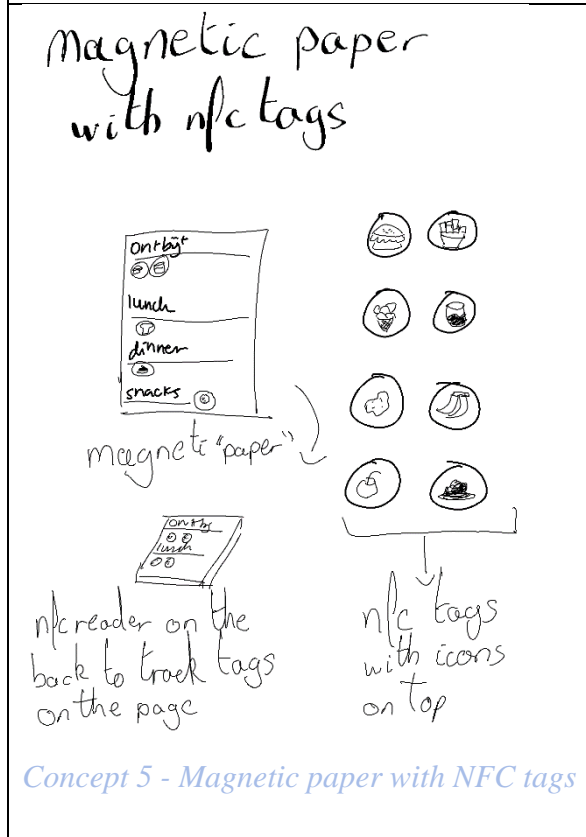 magnetic paper
with nfc tags
ontbijt
lunch
dinner
snacks
magnetic "paper"
ontbij
lunch
nfc reader on the
back to track tags
on the page
nfc tags
with icons
on top
Concept 5 - Magnetic paper with NFC tags